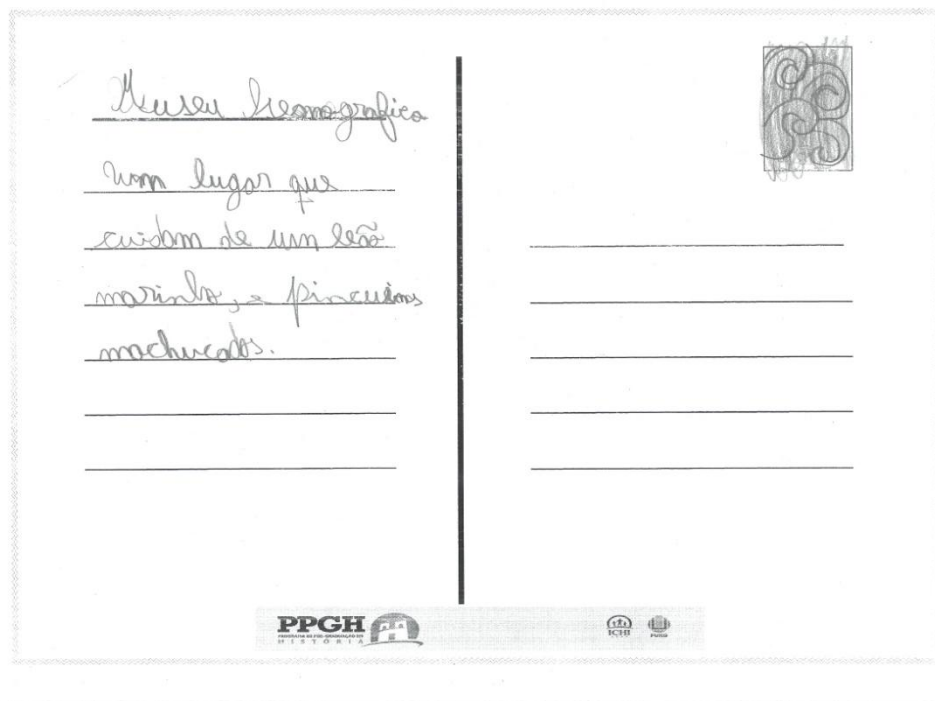 Museu
um lugar que
cuidam de um leão
marinho, e pincuims
machucados.
PPGH
PROGRAMA DE PÓS-GRADUAÇÃO EM
HISTÓRIA
ICHI
FURG